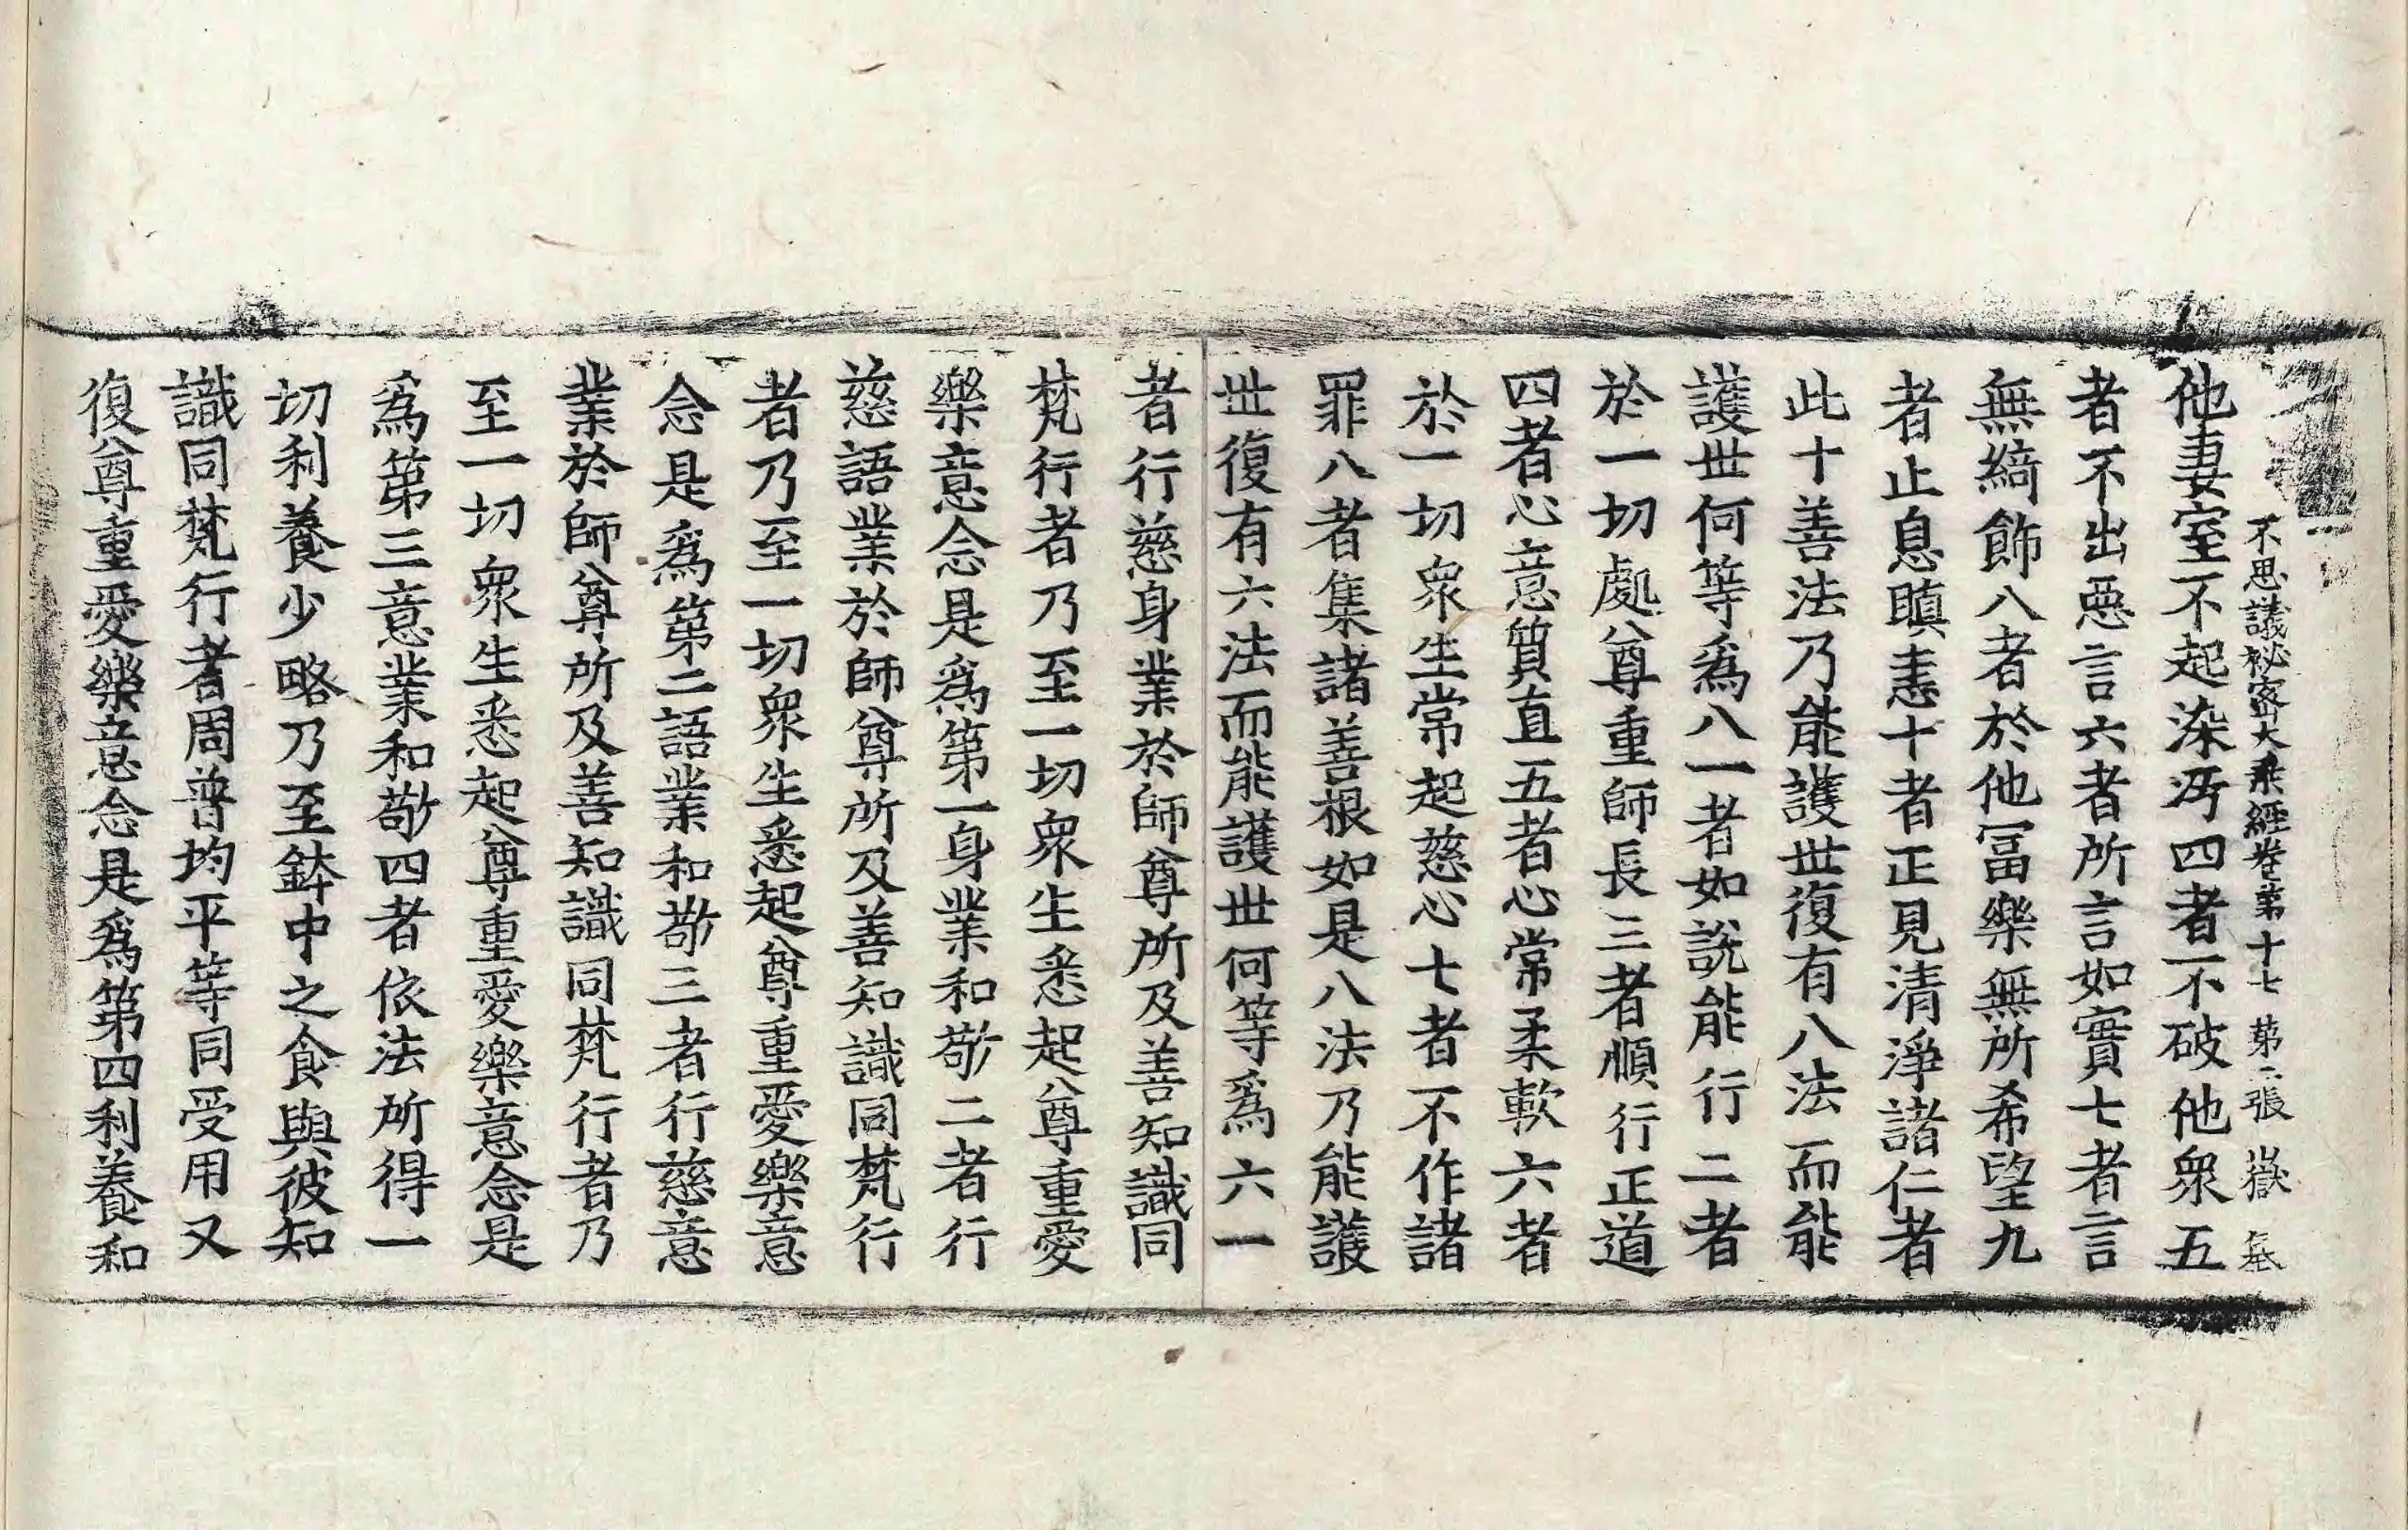 不思議祕密大乘經卷第十七　第二張　嶽
他妻室不起染污四者不破他衆五
者不出惡言六者所言如實七者言
無綺飾八者於他冨樂無所希望九
者止息瞋恚十者正見清淨諸仁者
此十善法乃能護世復有八法而能
護世何等爲八一者如說能行二者
於一切處尊重師長三者順行正道
四者心意質直五者心常柔軟六者
於一切衆生常起慈心七者不作諸
罪八者集諸善根如是八法乃能護
世復有六法而能護世何等爲六一
者行慈身業於師尊所及善知識同
梵行者乃至一切衆生悉起尊重愛
樂意念是爲第一身業和敬二者行
慈語業於師尊所及善知識同梵行
者乃至一切衆生悉起尊重愛樂意
念是爲第二語業和敬三者行慈意
業於師尊所及善知識同梵行者乃
至一切衆生悉起尊重愛樂意念是
爲第三意業和敬四者依法所得一
切利養少略乃至鉢中之食與彼知
識同梵行者周普均平等同受用又
復尊重愛樂意念是爲第四利養和